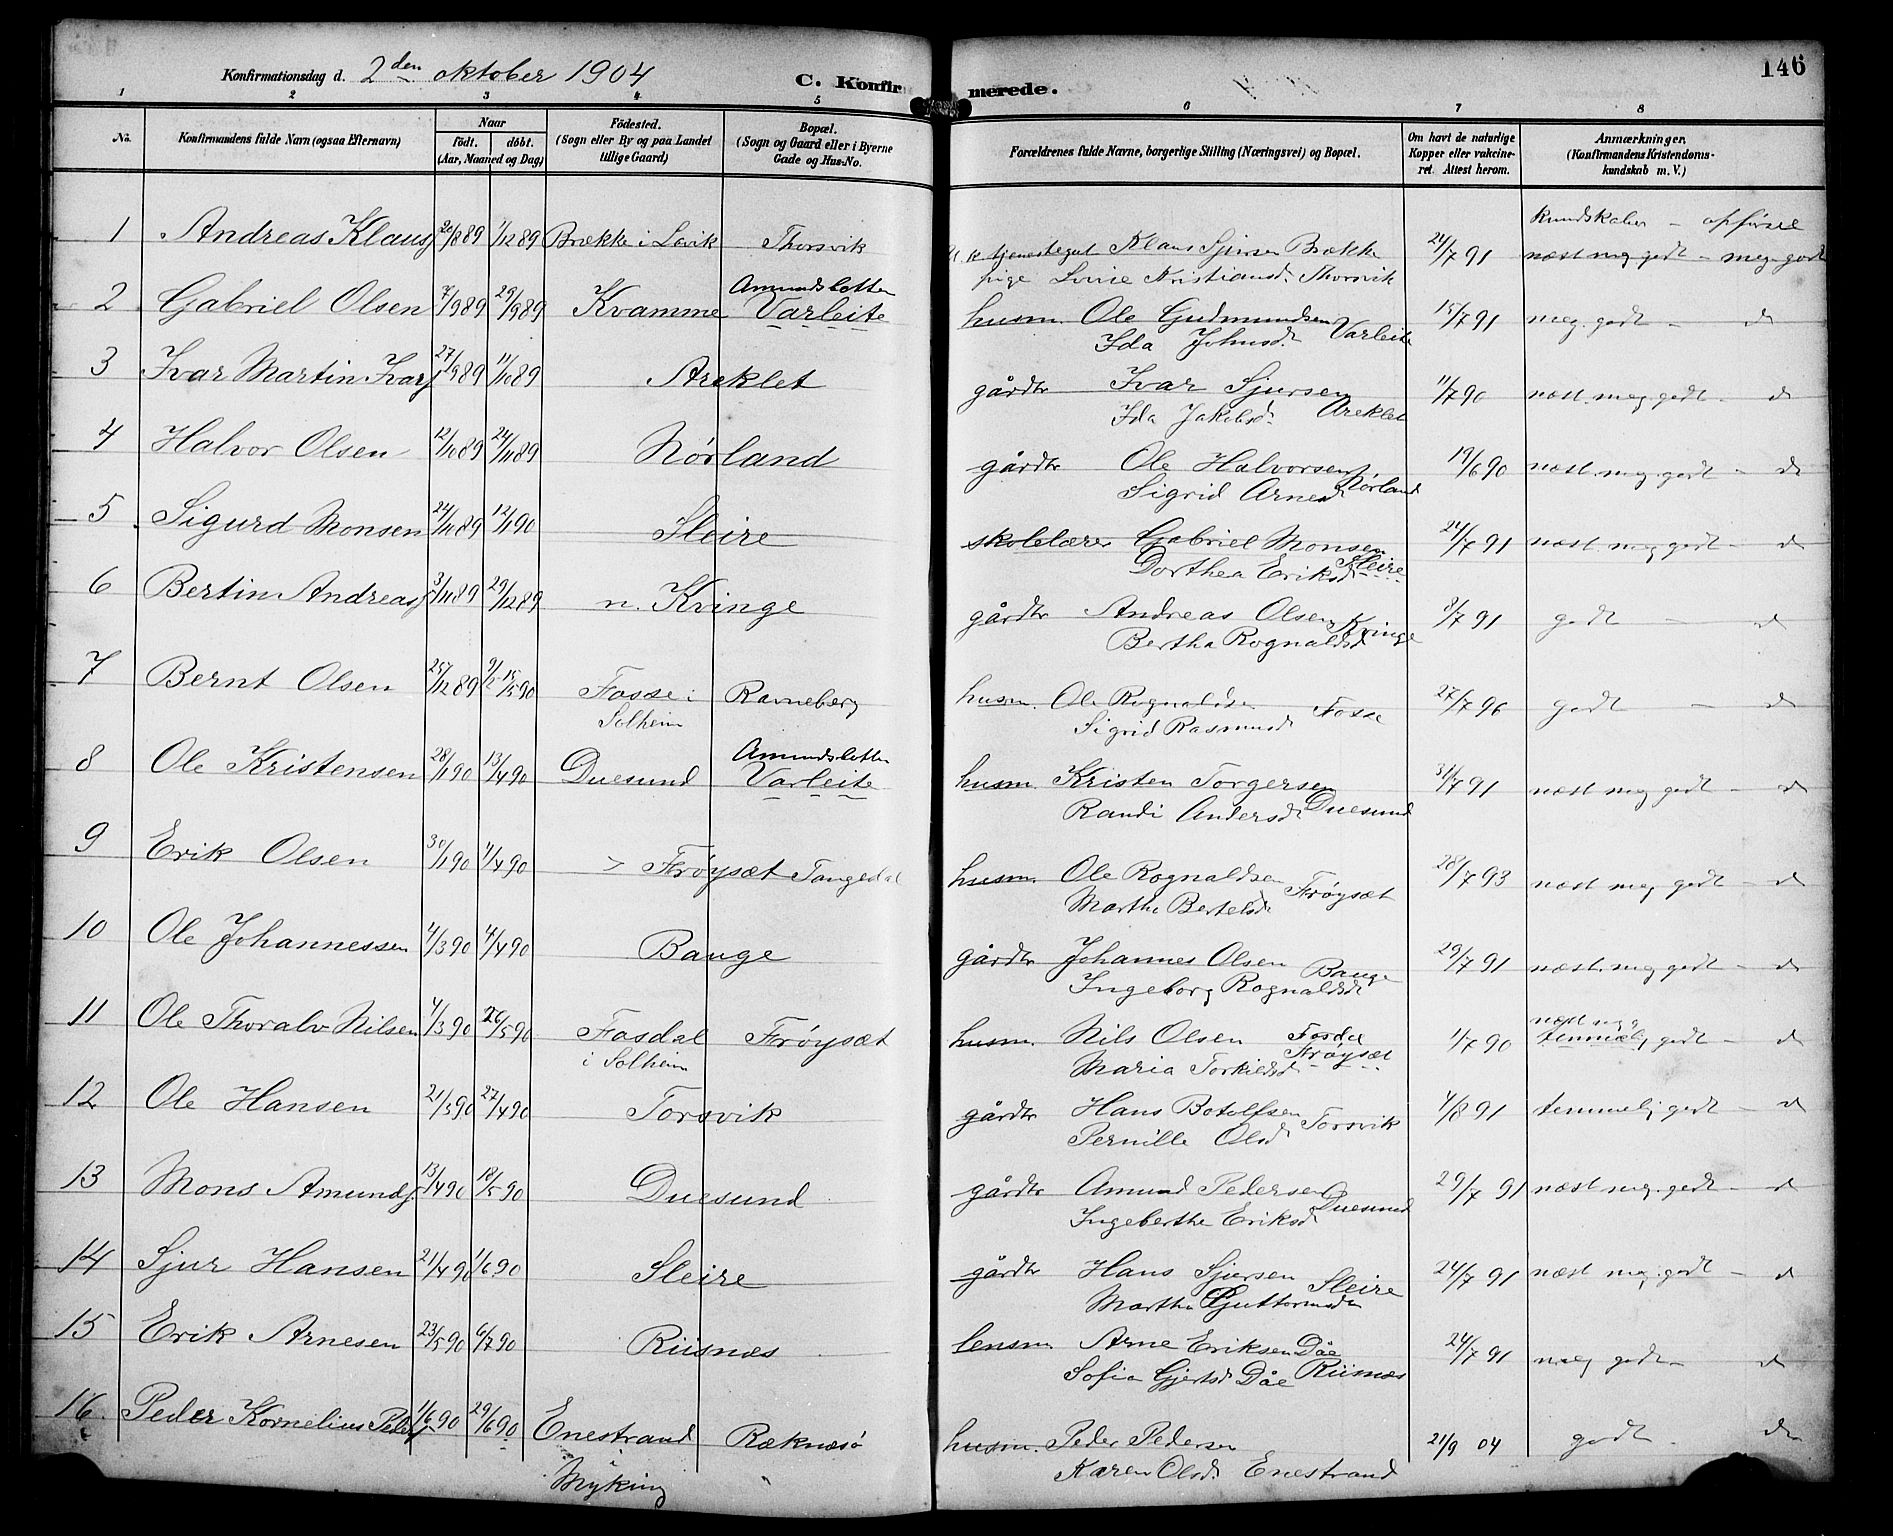 Konfirmationsdag d. 2den oktober 1904
C. Konfirmerede.
146
1 2 3 4 5 6 7 8
No.
Konfirmandens fulde Navn (ogsaa Efternavn)
Naar
födt. döbt.
(Aar, Maaned og Dag)
Födested.
(Sogn eller By og paa Landet
tillige Gaard)
Bopæl.
(Sogn og Gaard eller i Byerne
Gade og Hus-No.
Forældrenes fulde Navne, borgerlige Stilling (Næringsvei) og Bopæl.
Om havt de naturlige
Kopper eller vakcine-
ret. Attest herom.
Anmærkninger.
(Konfirmandens Kristendoms-
kundskab m. V.)
kundskaber - opførsel
1 Andreas Klaus 20/8 89 1/12 89 Brække i Lavik Thorsvik tjenestegut Klaus Sjursen Brække 24/7 91 næst meg godt - meg. godt
pige Lovise Kristiansd. Thorsvik
2 Gabriel Olsen 7/9 89 29/9 89 Kvamme Amundslotten Varleite husm. Ole Gudmundsen Varleite 15/7 91 meg. godt - d
Ida Johnsd.
3 Ivar Martin Ivars 27/9 89 11/10 89 Areklet gårdbr Ivar Sjursen 11/7 90 næst. meg godt - d
Ida Jakobsd. Areklet
4 Halvor Olsen 12/10 89 24/11 89 Nørland gårdbr Ole Halvorsen 19/6 90 næst. meg. godt - d
Sigrid Arnesd Nørland
5 Sigurd Monsen 24/11 89 12/1 90 Sleire skolelærer Gabriel Monsen 24/7 91 næst meg godt - d
Dorthea Eriksd Sleire
6 Bertin Andreas 3/11 89 29/12 89 n. Kvinge gårdbr Andreas Olsen Kvinge 8/7 91 godt - d
Bertha Rognaldsd
7 Bernt Olsen 25/12 89 9/2 15/5 90 Fosse i Solheim Ravneberg husm. Ole Rognaldsen Fosse 27/7 96 godt - d
Sigrid Rasmusd
8 Ole Kristensen 28/1 90 13/4 90 Duesund Amundslotten Varleite husm. Kristen Torgersen 31/7 91 næst meg godt - d
Randi Andersd Duesund
9 Erik Olsen 30/1 90 4/4 90 Frøysæt Tangedal husm. Ole Rognaldsen Frøysæt 28/7 93 næst meg godt - d
Martha Bertelsd
10 Ole Johannessen 4/3 90 4/4 90 Bauge gårdbr Johannes Olsen Bauge 29/7 91 næst. meg godt - d
Ingeborg Rognaldsd
11 Ole Thoralv Nilsen 4/3 90 26/5 90 Fosdal i Solheim Frøysæt husm. Nils Olsen Fosdal Frøysæt 1/7 90 næst meg temmelig godt - d
Maria Torkildsd
12 Ole Hansen 21/3 90 27/4 90 Torsvik gårdbr Hans Botolfsen Torsvik 4/8 91 temmelig godt - d
Pernille Olsd
13 Mons Amunds 13/4 90 18/5 90 Duesund gårdbr Amund Pedersen Duesund 29/7 91 næst meg. godt - d
Ingeborthe Eriksd
14 Sjur Hansen 21/4 90 1/6 90 Sleire gårdbr Hans Sjursen Sleire 24/7 91 næst meg. godt - d
Martha Guttormsd
15 Erik Arnesen 23/5 90 6/7 90 Riisnæs lensm Arne Eriksen Dåe 24/7 91 meg godt - d
Sofia Gjertsd Dåe Riisnæs
16. Peder Kornelius Peders 11/6 90 29/6 90 Enestrand Ræknæsø husm. Peder Pedersen 21/9 04 godt - do
Myking Karen Olsd. Enestrand